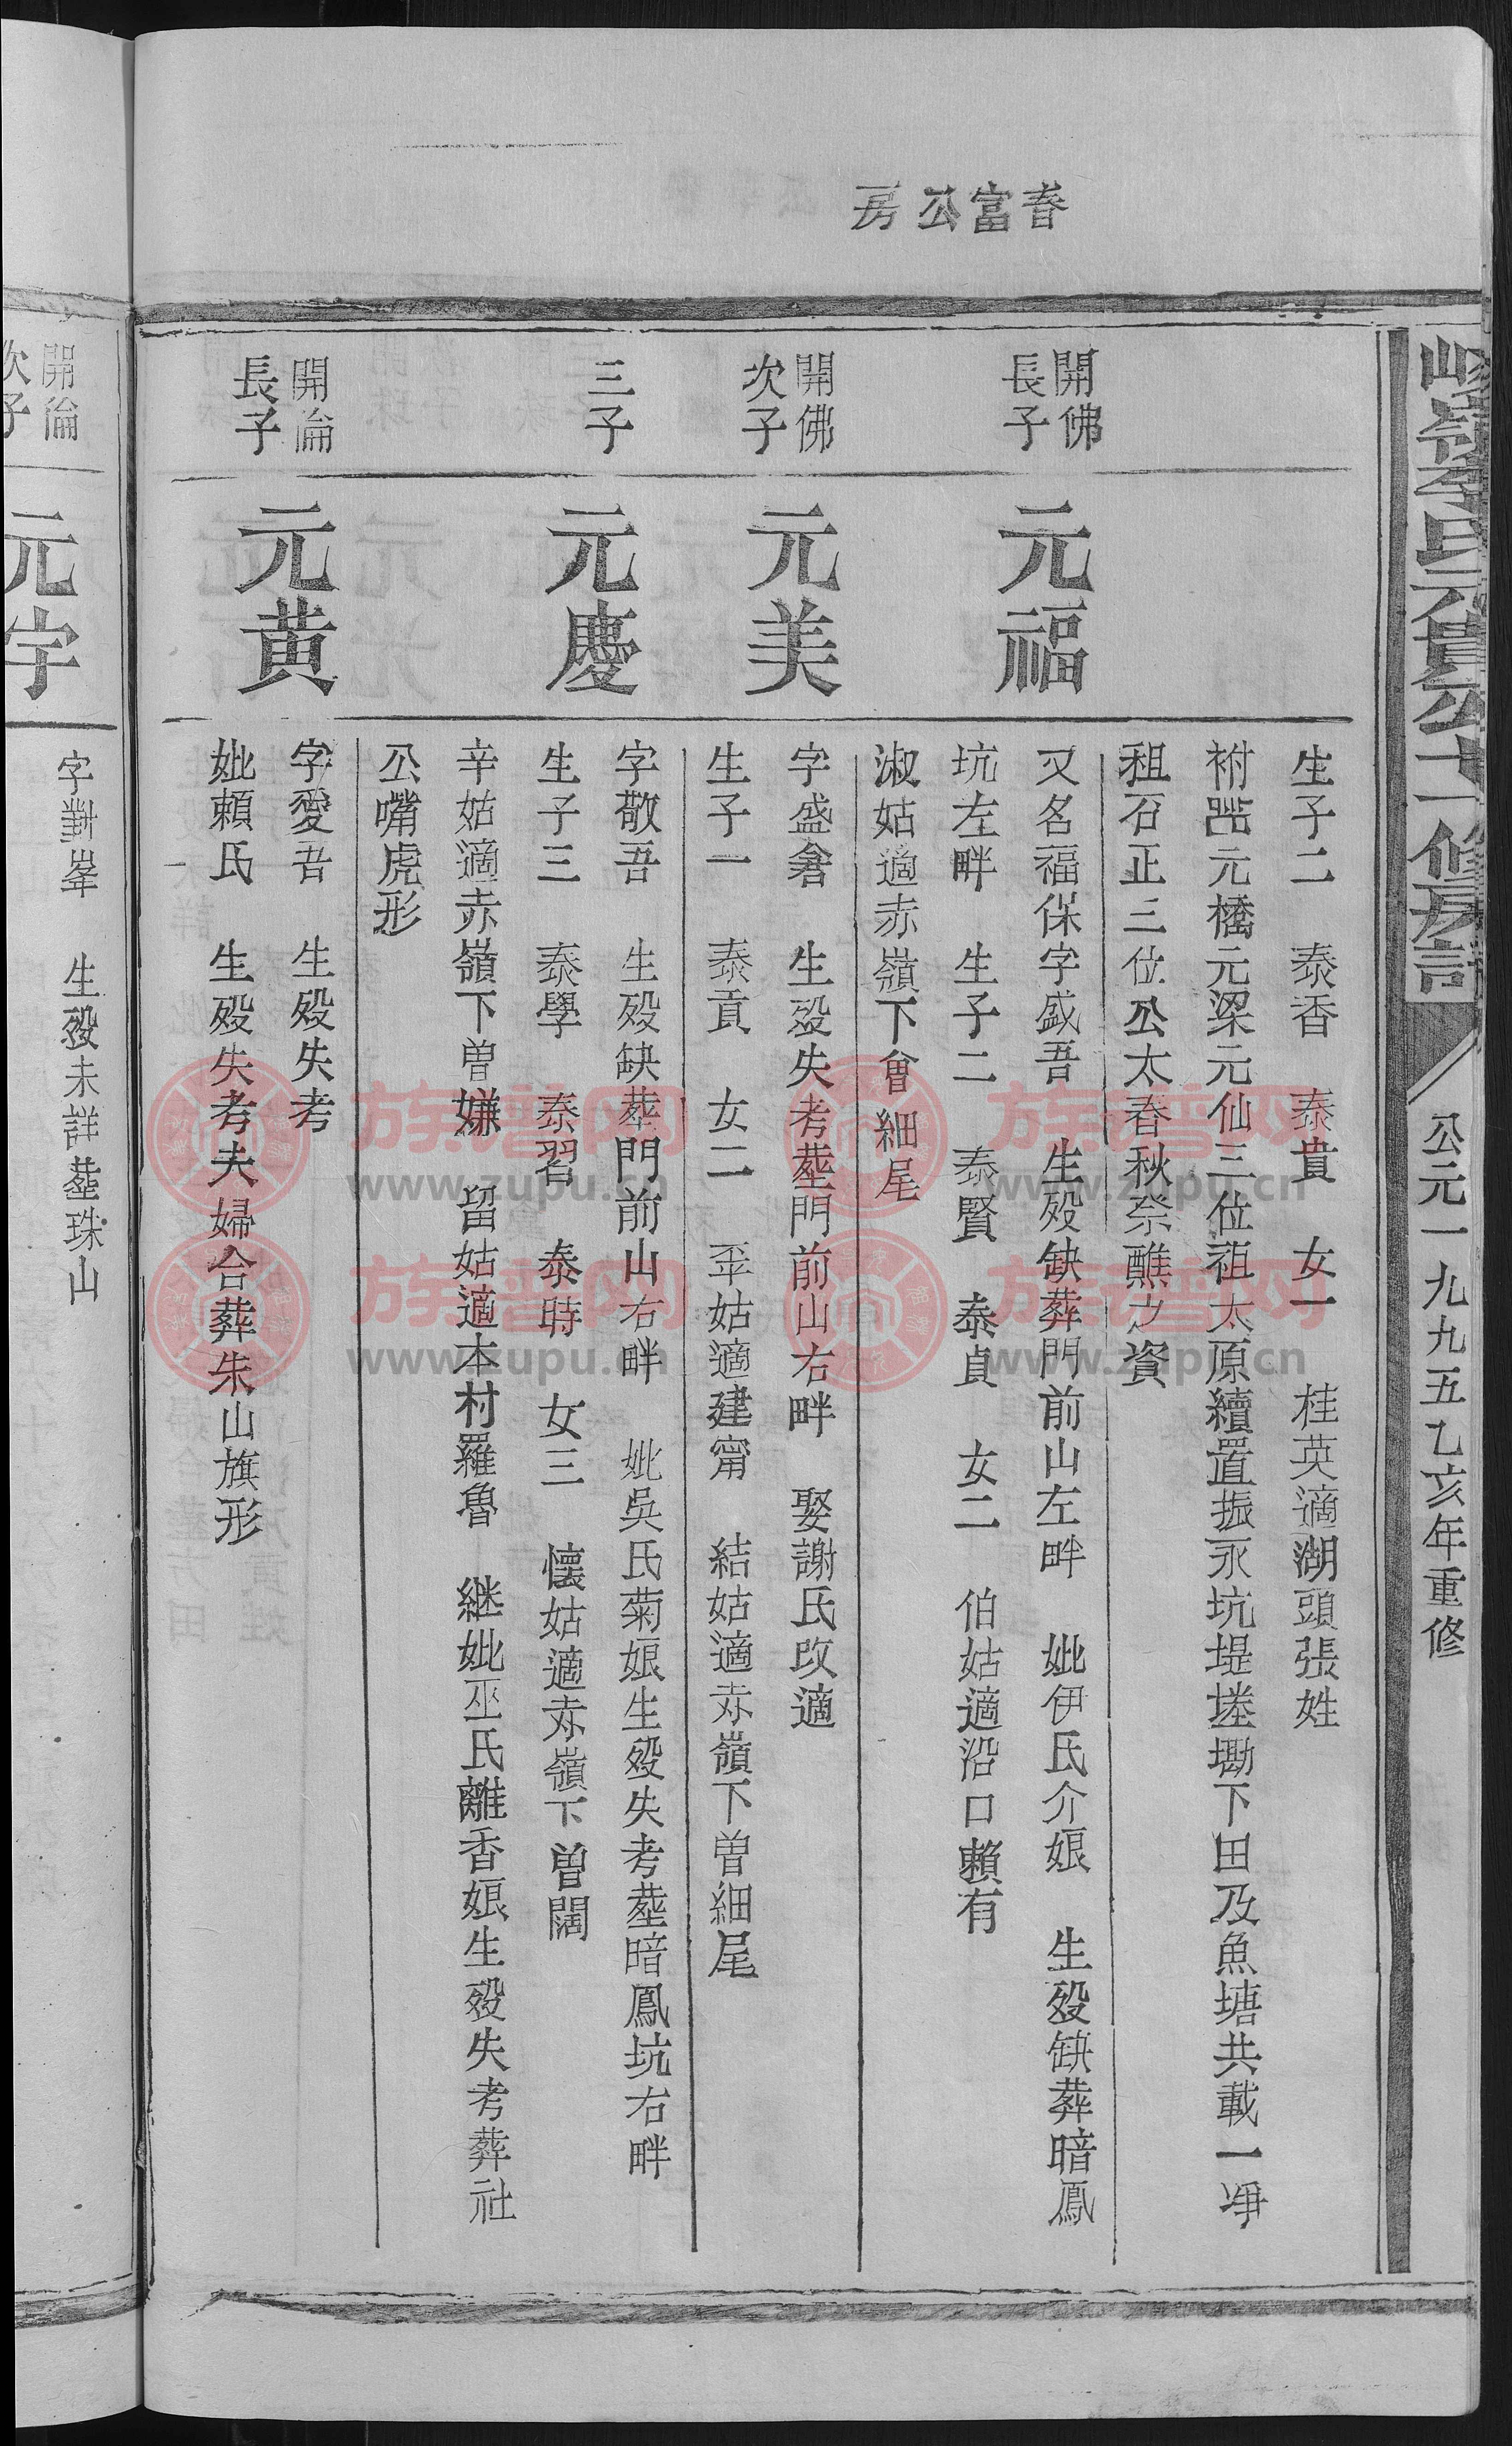 春富公房
公元一九九五乙亥年重修
生子二 泰香 泰貴 女一 桂英適湖頭張姓
祔 元橋元梁元仙三位祖太原續置振永坑堤塟墈下田及魚塘共載一凈
租石正三位公太春秋祭醮之資
開佛
長子
元福
又名福保字盛吾 生歿缺葬門前山左畔 妣伊氏介娘 生歿缺葬暗鳳
坑左畔 生子二 泰賢 泰貞 女二 伯姑適沿口賴有
淑姑適赤嶺下曾細尾
開佛
次子
元美
字盛窘 生歿失考塟門前山右畔 娶謝氏改適
生子一 泰貢 女二 平姑適建甯 結姑適赤嶺下曾細尾
三子
元慶
字敬吾 生歿缺塟門前山右畔 妣吳氏菊娘生歿失考塟暗鳳坑右畔
生子三 泰學 泰習 泰時 女三 懷姑適赤嶺下曾闊
辛姑適赤嶺下曾嫌 留姑適本村羅魯 継妣巫氏離香娘生歿失考葬社
公嘴虎形
開倫
長子
元黄
字愛吾 生歿失考
妣賴氏 生歿失考夫婦合葬朱山旗形
開倫
次子
元宇
字對峯 生歿未詳塟珠山
族譜网
www.zupu.cn
族譜网
www.zupu.cn
族譜网
www.zupu.cn
族譜网
www.zupu.cn